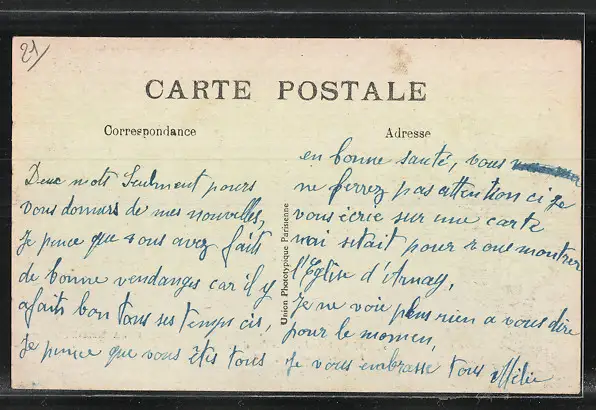 21
CARTE POSTALE
Correspondance
Adresse
Deux mots Seulment pours
vous donnurs de mes nouvelles,
Je pence que vous avez faits
de bonne vendanges car il y
a faits bon tous ses temps cis,
Je pence que vous êtis tous
en bonne santé, vous
ne ferrez pas attention ci je
vous écrie sur une carte
mai sitait pour vous montrer
l'Eglise d'Arnay,
Je ne voie plus rien a vous dire
pour le momen,
Je vous embrasse tous Mélie
Union Phototypique Parisienne